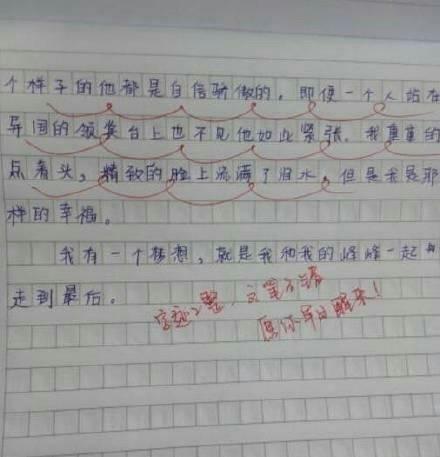 个样子的他都是自信骄傲的。即便一个人站在
异国的领奖台上也不见他如此紧张。我重重的
点着头,精致的脸上流满了泪水,但是我是那
样的幸福。
我有一个梦想,就是我和我的峰峰一起
走到最后。
字迹工整,文笔不错
愿你早日醒来!